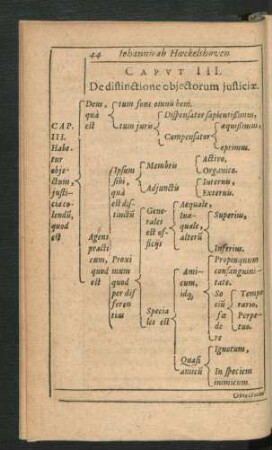 44 Iohannis ab Hœckelshoven
CAPVT III.
De distinctione objectorum justiciæ.
CAP.
III.
Habe-
tur
obje-
ctum,
justi-
cia co-
lendũ,
quod
est
Deus,
quà
est
tum suæ
tum juris
Dispensator sapientissimus,
Compensator
æquissimus,
optimus.
Agens
practi
cum,
quod
est
Ipsum
sibi,
quà
est dis-
tinctũ
Membris
Activo,
Organico.
Adjunctis
Internis,
Externis.
Proxi
mum
quod
per dif
feren-
tias
Gene-
rales
est of-
ficijs
Aequale,
Inæ-
quale,
alterũ
Superius,
Inferius.
Specia
les est
Ami-
cum,
idq;
Propinquum
consanguini-
tate.
So
ciũ
fœ
de-
re
Tempo
rario.
Perpe-
tuo.
Quasi
amicũ
Ignotum,
In speciem
inimicum.